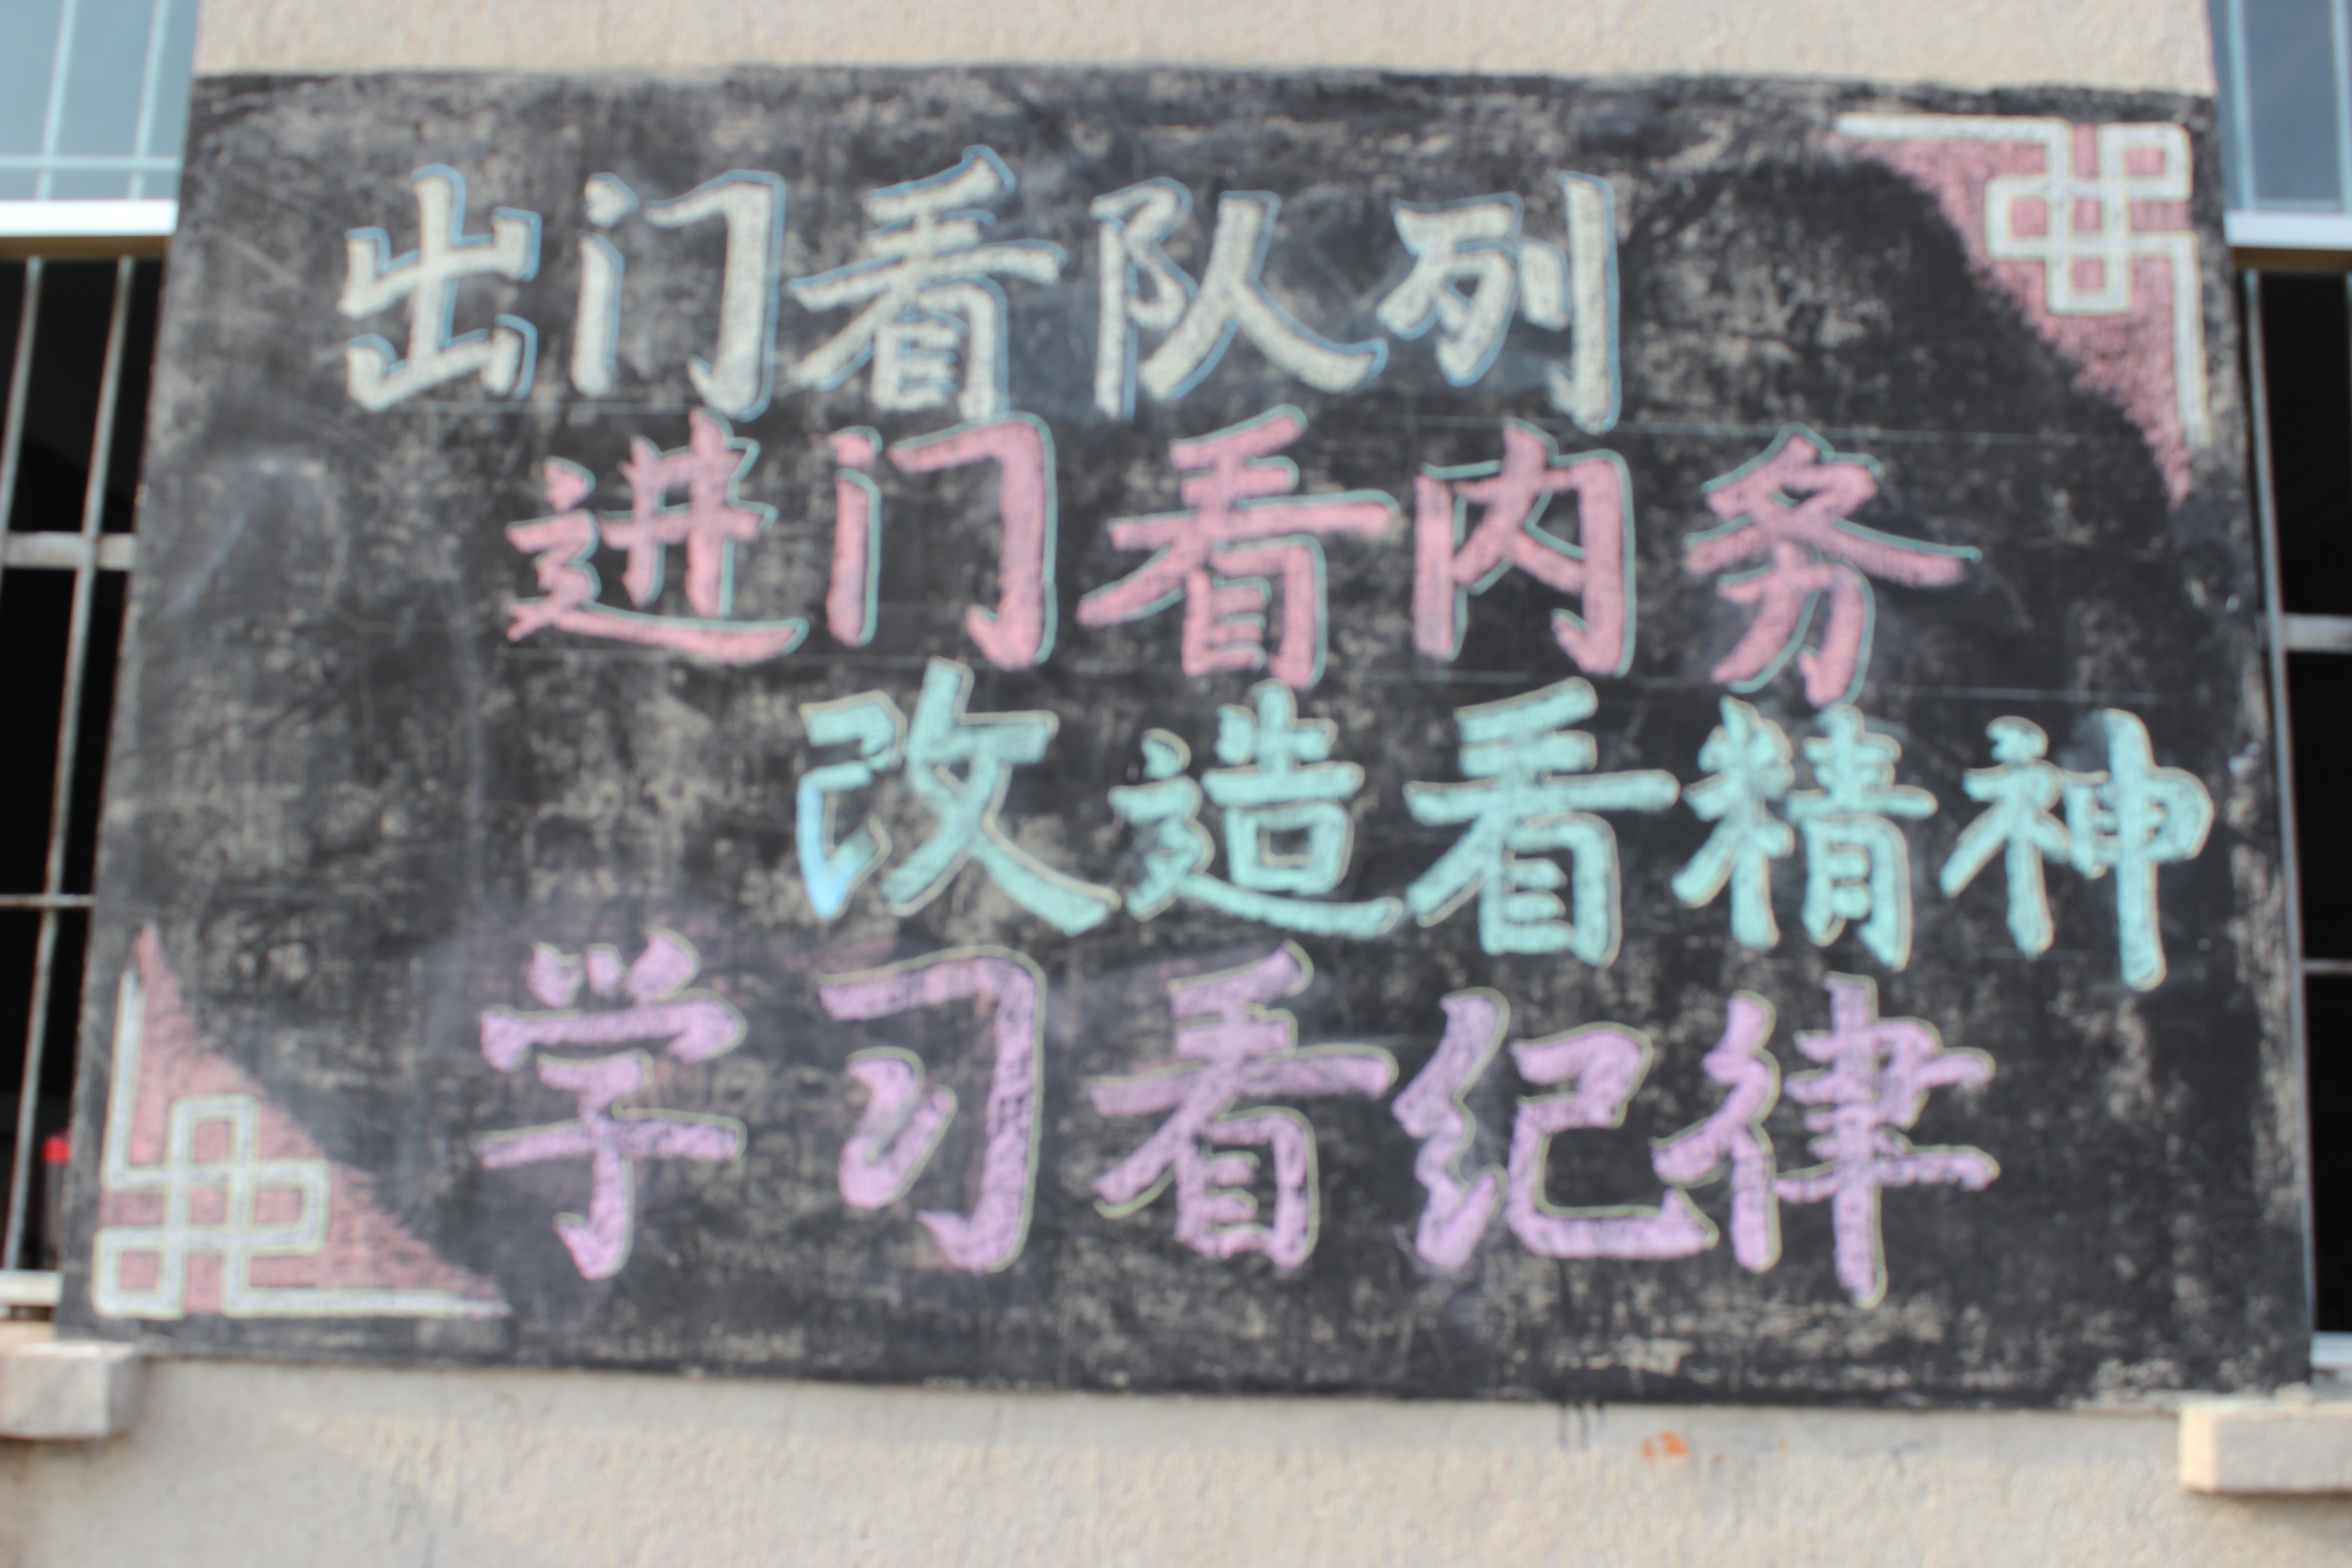 出门看队列
进门看内务
改造看精神
学习看纪律